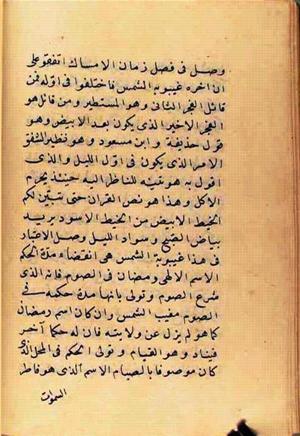 وصل في فصل زمان الامساك اتفقوا على
ان اخره غيبوبة الشمس فاختلفوا في اوله فمن
قائل الفجر الثاني وهو المستطير ومن قائل هو
الفجر الاحمر الذي يكون بعد الابيض وهو
قول حذيفة وابن مسعود وهو نظير الشفق
الاحمر الذي يكون في اول الليل والذي
اقول به هو تبينه للناظر اليه حينئذ يحرم
الاكل وهذا هو نص القران حتى يتبين لكم
الخيط الابيض من الخيط الاسود يريد
بياض الصبح وسواد الليل وصل الاعتبار
في هذا غيبوبة الشمس هي انقضاء مدة حكم
الاسم الالهي رمضان في الصوم فانه الذي
شرع الصوم وتولى بانها مدة حكمه في
الصوم مغيب الشمس وان كان اسم رمضان
كما هو لم يزل عن ولايته فان له حكما اخر
فينا وهو القيام وتولى الحكم في المحل الذي
كان موصوفا بالصيام الاسم الذي هو فاطر
السموات